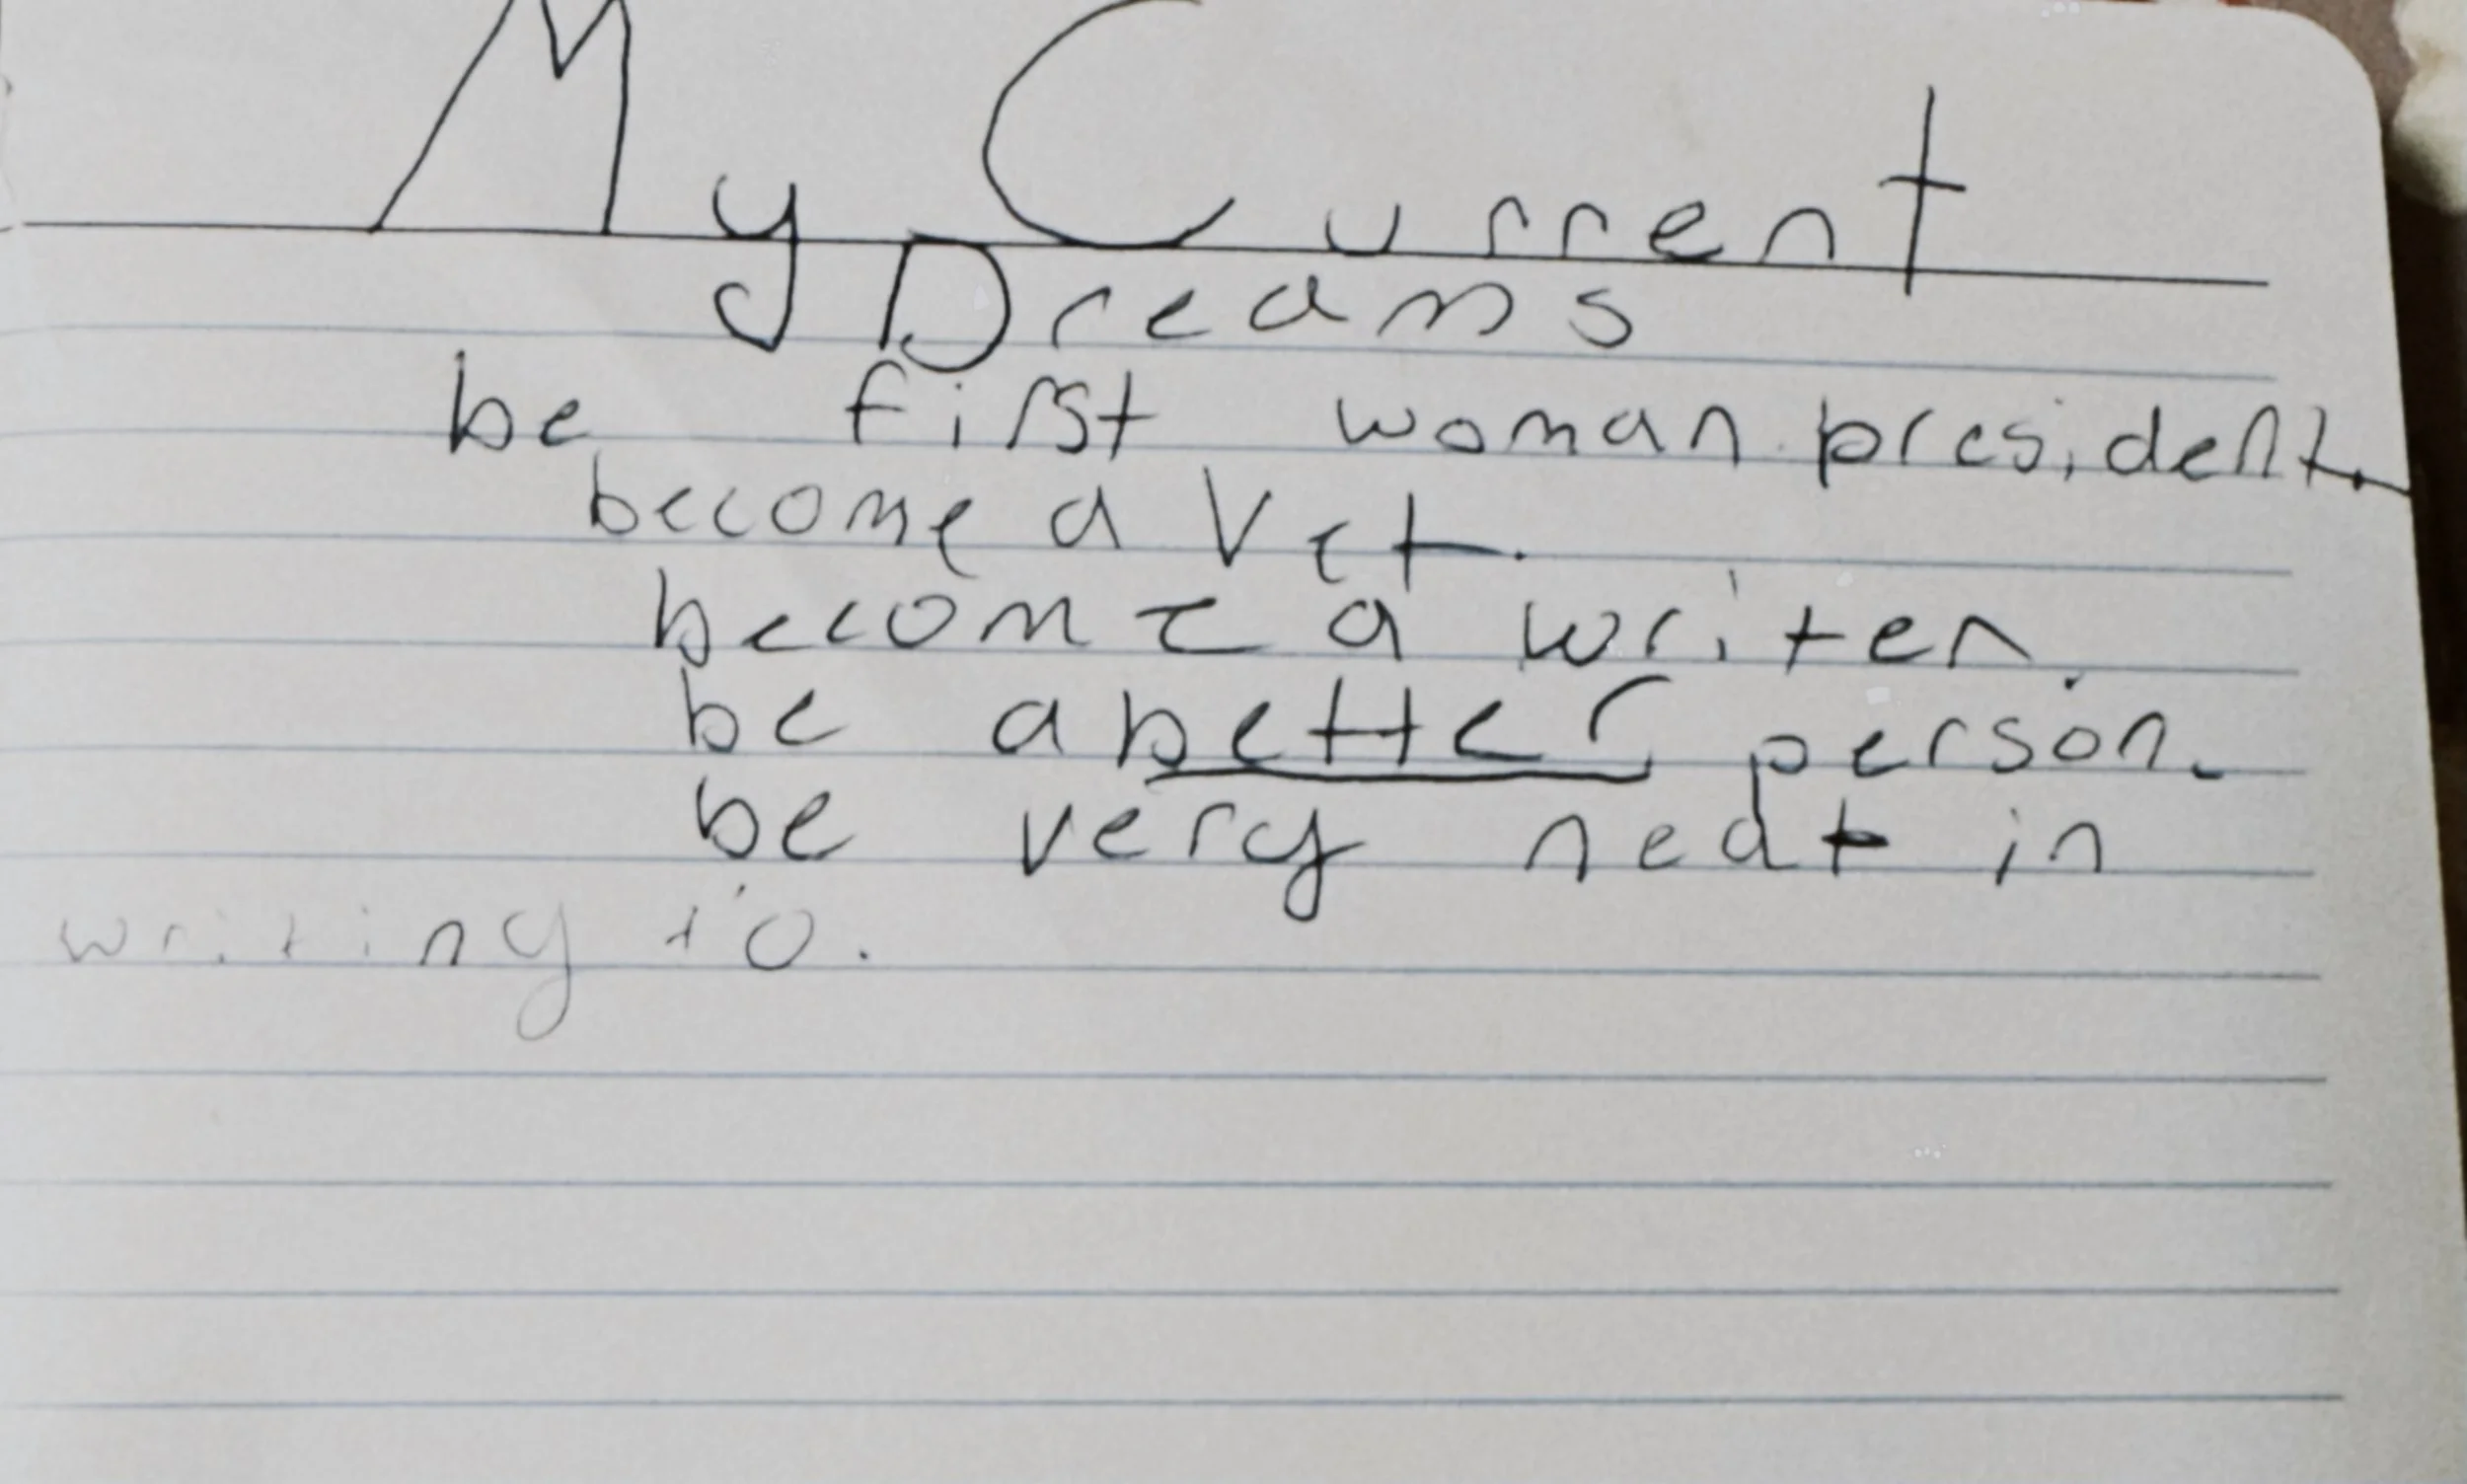 My Current
Dreams
be first woman president.
become a Vet.
become a writer.
be a better person.
be very neat in
writing to.